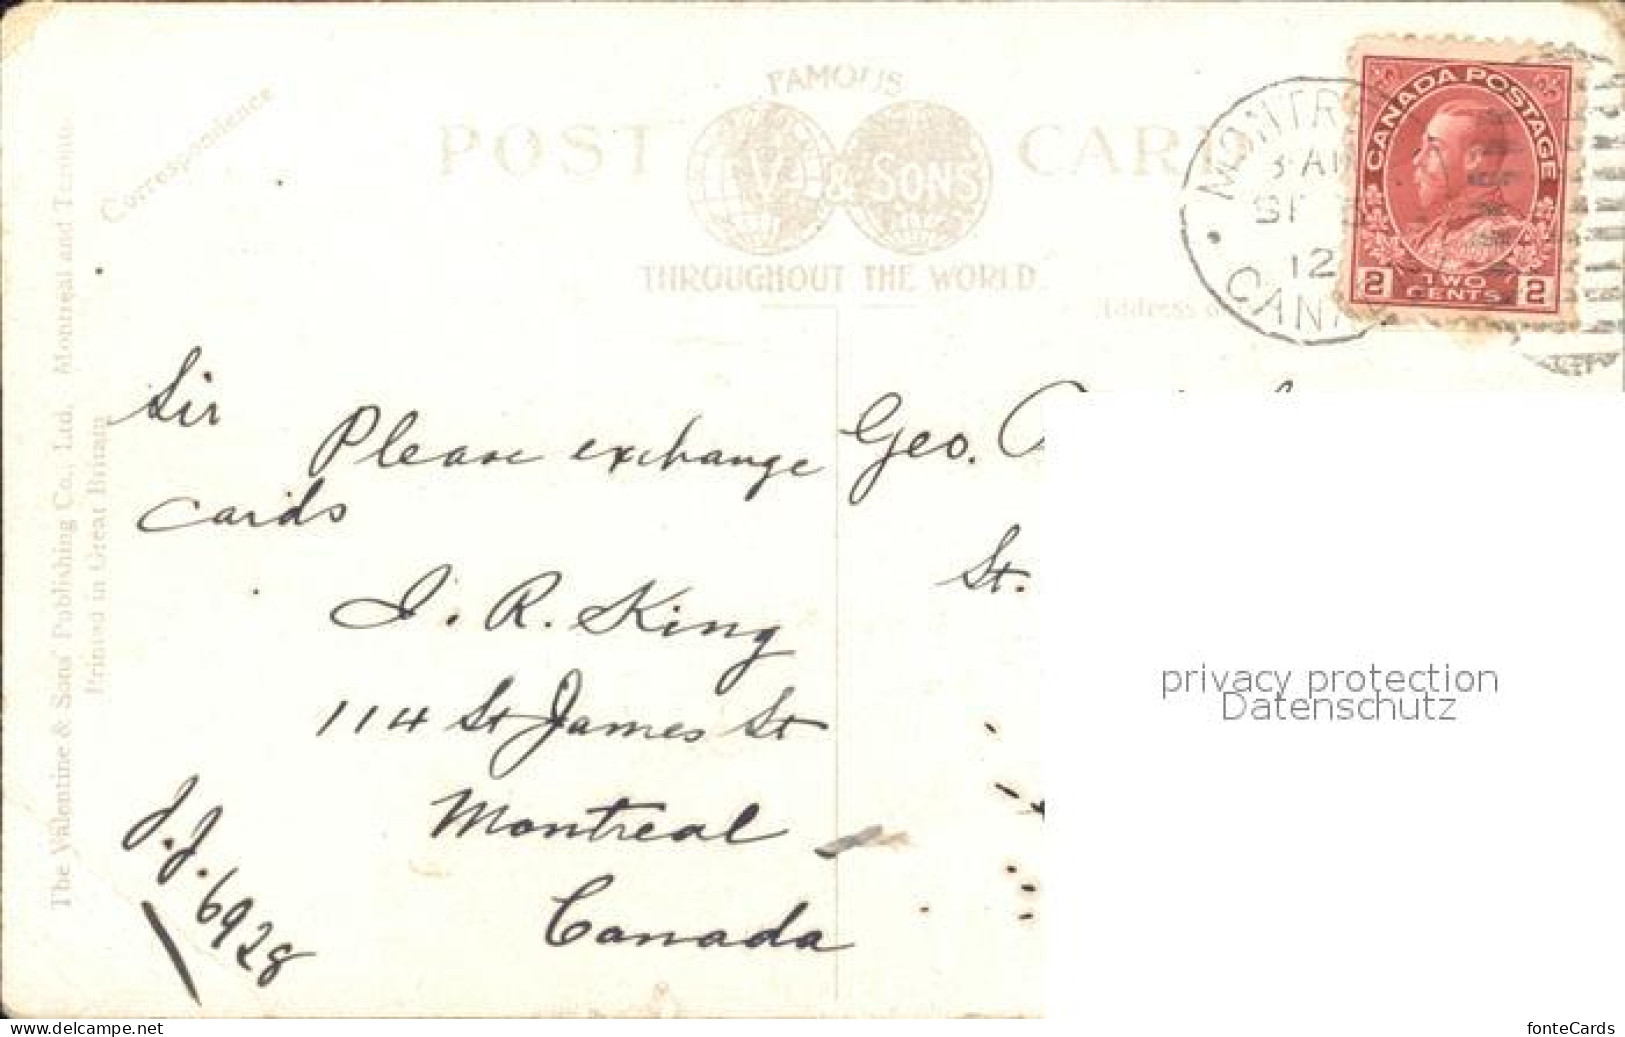 Correspondence
FAMOUS
POST CARD
V & SONS
THROUGHOUT THE WORLD
Address
MONTR
3 AM
SE
12
CANA
CANADA POSTAGE
2 TWO CENTS 2
The Valentine & Sons' Publishing Co., Ltd. Montreal and Toronto.
Printed in Great Britain
Sir
Please exchange
cards
J. R. King
114 St James St
Montreal
Canada
J.J. 6928
Geo.
St.
privacy protection
Datenschutz
www.delcampe.net
fonteCards